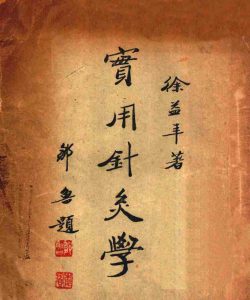 徐益年著
實用針灸學
鄒魯題